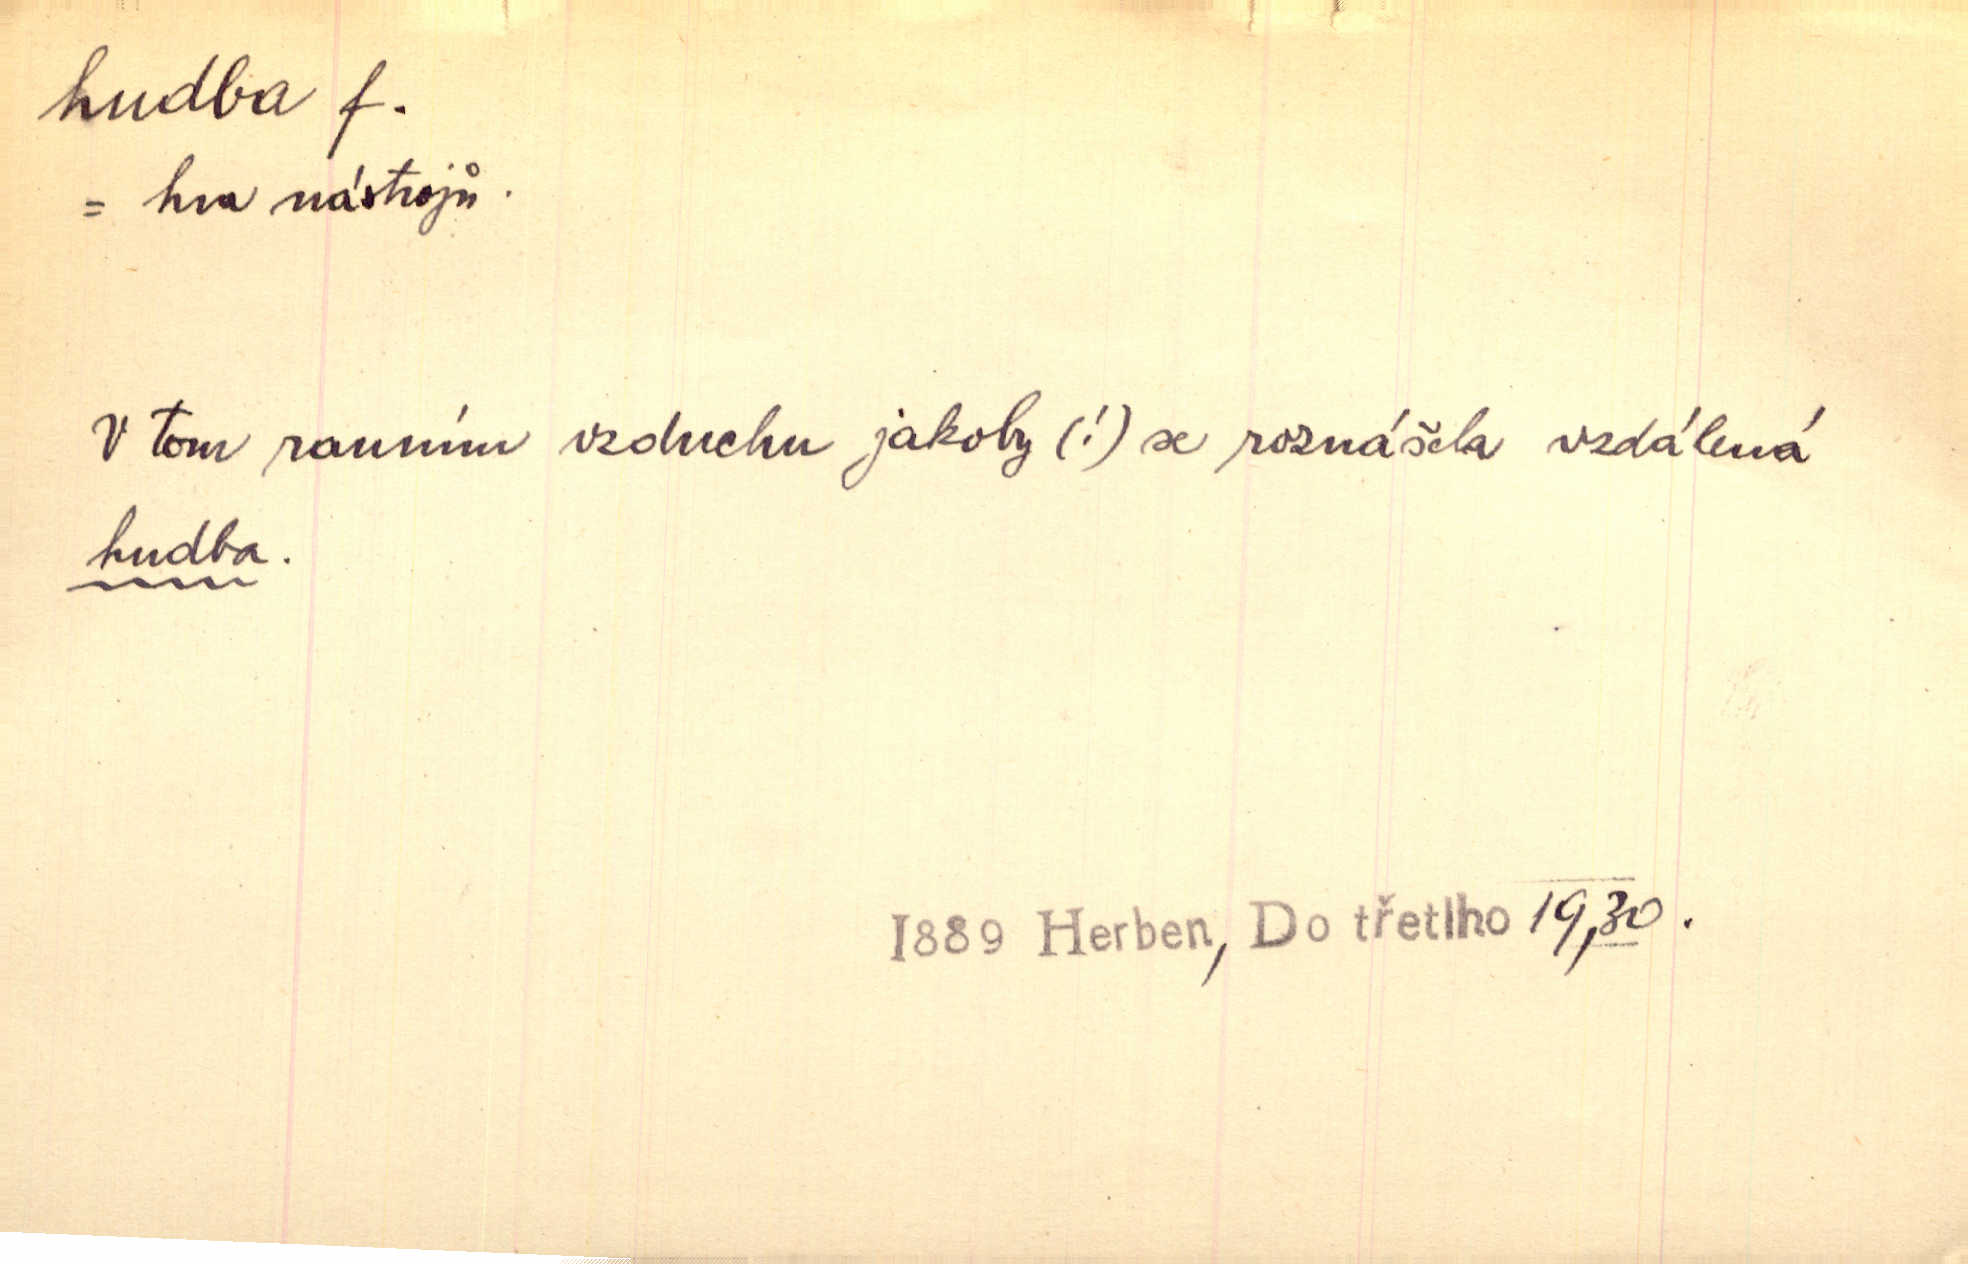 hudba f.
= hra nástrojů.
V tom ranním vzduchu jakoby (!) se roznášela vzdálená
hudba.
1889 Herben, Do třetího 19,30.